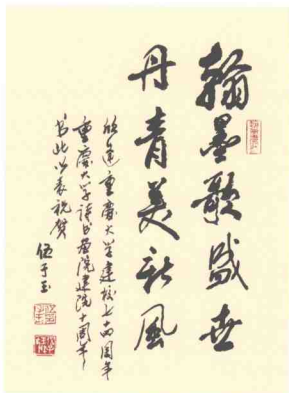 翰墨歌盛世
丹青美新風
欣逢重慶大学建校七十四周年
重慶大学詩书画院建院十周年
书此以表祝賀
伍于玉